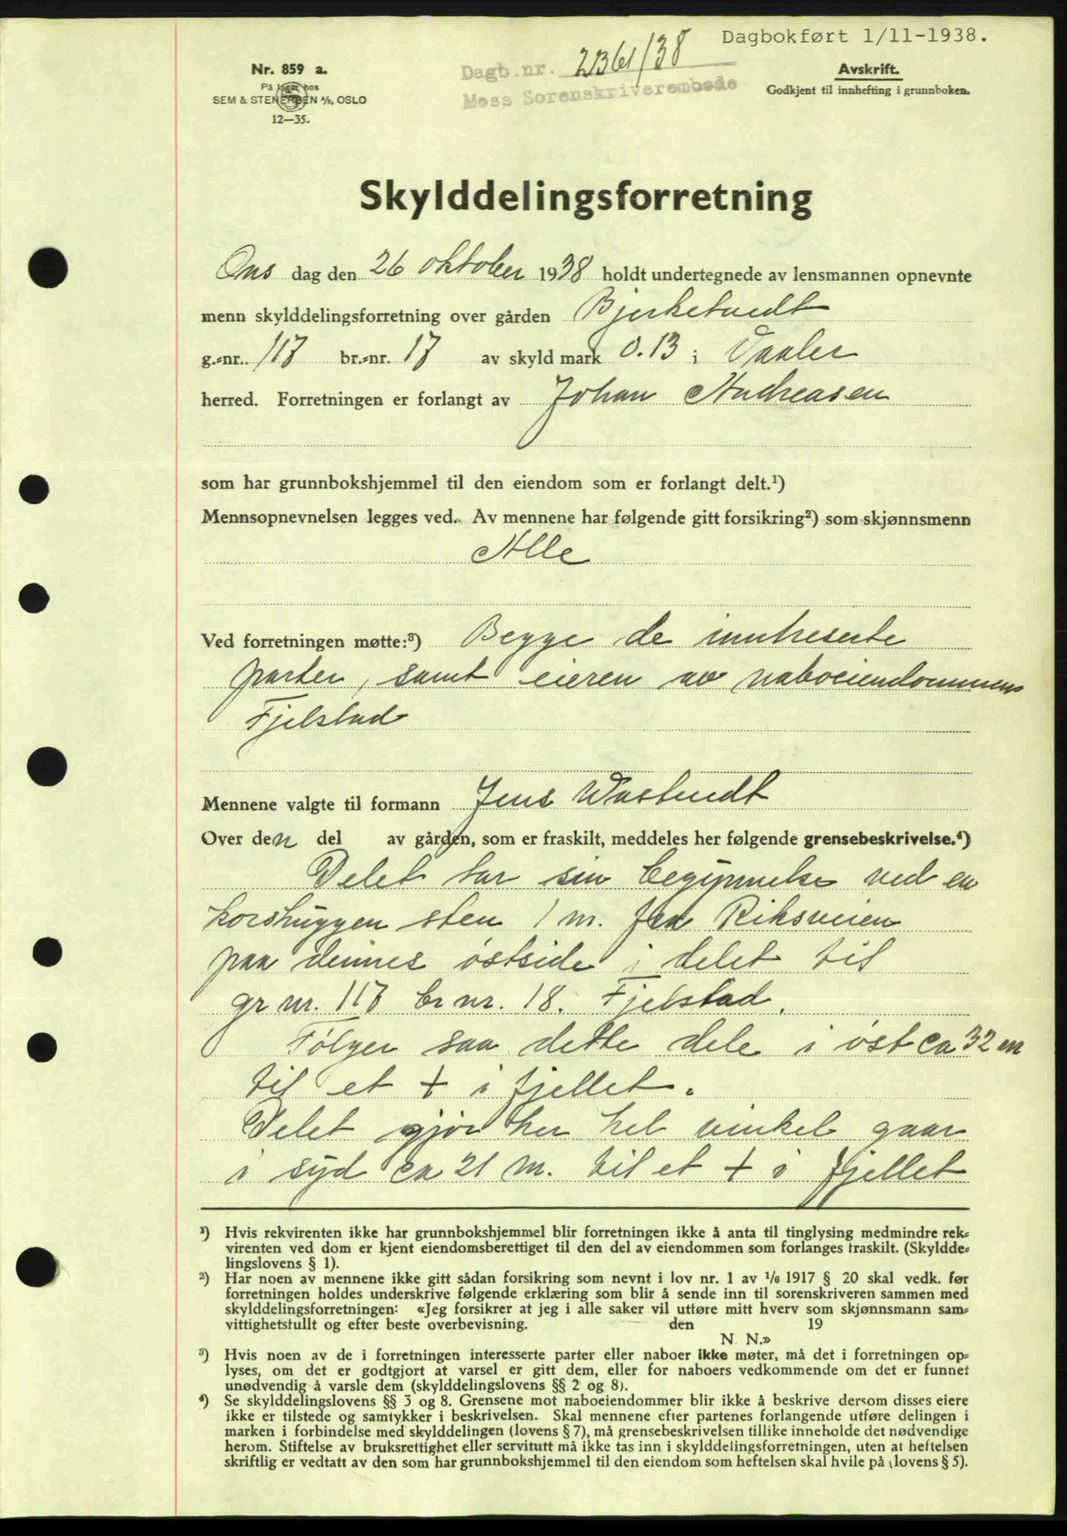 Dagbokført 1/11-1938.
Nr. 859 a.
På lager hos
SEM & STENERSEN A/S, OSLO
12—35.
Dagb.nr. 2361/38
Moss Sorenskriverembede
Avskrift.
Godkjent til innhefting i grunnboken.
Skylddelingsforretning
Ons dag den 26 oktober 1938 holdt undertegnede av lensmannen opnevnte
menn skylddelingsforretning over gården Bjerketvedt
g.-nr. 117 br.-nr. 17 av skyld mark 0.13 i Vaaler
herred. Forretningen er forlangt av Johan Andreasen
som har grunnbokshjemmel til den eiendom som er forlangt delt.¹)
Mennsopnevnelsen legges ved. Av mennene har følgende gitt forsikring²) som skjønnsmenn
Alle
Ved forretningen møtte:³) Begge de inntreserte
parter, samt eieren av naboeiendommens
Fjelstad
Mennene valgte til formann Jens
Over den del av gården, som er fraskilt, meddeles her følgende grensebeskrivelse.⁴)
Delet tar sin begynnelse ved en
korshuggen sten 1 m. fra Riksveien
paa dennes østside i delet til
gr nr. 117 br nr. 18. Fjelstad.
Følger saa dette dele i øst ca 32 m
til et + i fjellet.
Delet gjør her hel vinkel gaar
i syd ca 21 m. til et + i fjellet
¹) Hvis rekvirenten ikke har grunnbokshjemmel blir forretningen ikke å anta til tinglysing medmindre rek-
virenten ved dom er kjent eiendomsberettiget til den del av eiendommen som forlanges fraskilt. (Skyldde-
lingslovens § 1).
²) Har noen av mennene ikke gitt sådan forsikring som nevnt i lov nr. 1 av 1/6 1917 § 20 skal vedk. før
forretningen holdes underskrive følgende erklæring som blir å sende inn til sorenskriveren sammen med
skylddelingsforretningen: «Jeg forsikrer at jeg i alle saker vil utføre mitt hverv som skjønnsmann sam-
vittighetsfullt og efter beste overbevisning. den 19
N. N.»
³) Hvis noen av de i forretningen interesserte parter eller naboer ikke møter, må det i forretningen op-
lyses, om det er godtgjort at varsel er gitt dem, eller for naboers vedkommende om det er funnet
unødvendig å varsle dem (skylddelingslovens §§ 2 og 8).
⁴) Se skylddelingslovens §§ 3 og 8. Grensene mot naboeiendommer blir ikke å beskrive dersom disses eiere
ikke er tilstede og samtykker i beskrivelsen. Skal mennene efter partenes forlangende utføre delingen i
marken i forbindelse med skylddelingen (lovens § 7), må grensebeskrivelsen tillike inneholde det nødvendige
herom. Stiftelse av bruksrettighet eller servitutt må ikke tas inn i skylddelingsforretningen, uten at heftelsen
skriftlig er vedtatt av den som har grunnbokshjemmel til den eiendom som heftelsen skal hvile på (lovens § 5).